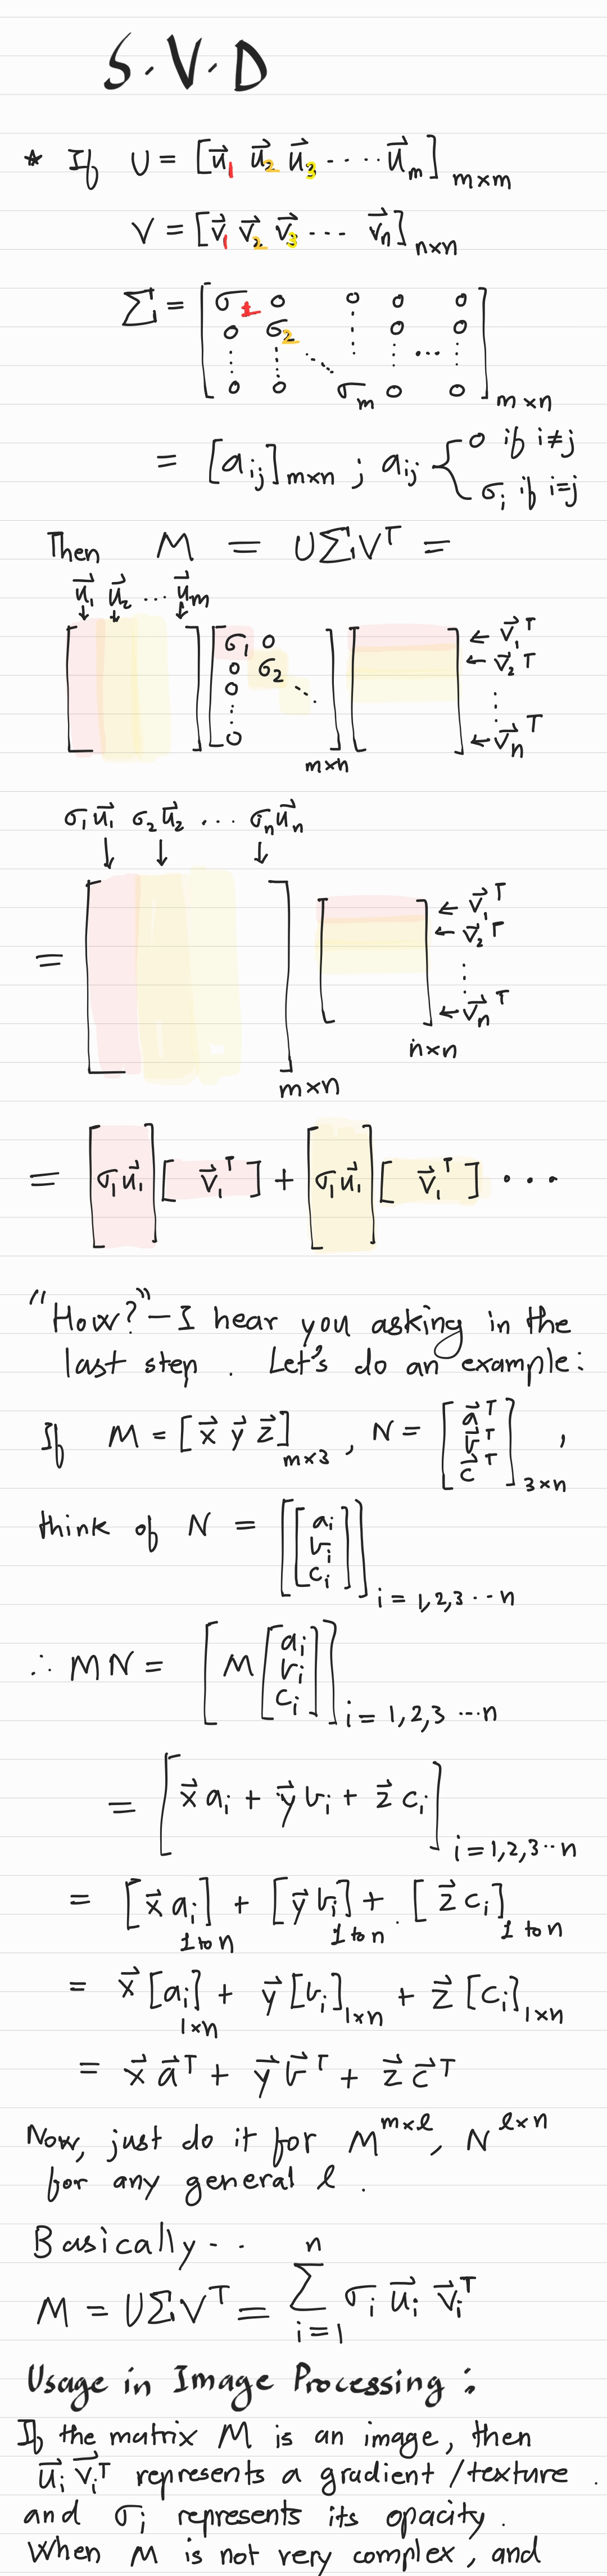 S.V.D
* If U = [u⃗₁ u⃗₂ u⃗₃ ..... u⃗ₘ] m×m
V = [v⃗₁ v⃗₂ v⃗₃ ... v⃗ₙ] n×n
Σ = [σ₁ 0 0 0 0
0 σ₂ ⋮ 0 0
⋮ ⋮ ⋱ ⋮ ... ⋮
0 0 σₘ 0 0] m×n
= [aᵢⱼ] m×n ; aᵢⱼ { 0 if i≠j
σᵢ if i=j
Then M = UΣVᵀ =
u⃗₁ u⃗₂ ... u⃗ₘ
↓ ↓ ↓
[ ] [σ₁ 0 ] [ ] ← v⃗₁ᵀ
0 σ₂ ← v⃗₂ᵀ
0 ⋱ ⋮
⋮
0 ← v⃗ₙᵀ
m×n
σ₁u⃗₁ σ₂u⃗₂ ... σₙu⃗ₙ
↓ ↓ ↓
= [ ] [ ] ← v⃗₁ᵀ
← v⃗₂ᵀ
⋮
← v⃗ₙᵀ
m×n n×n
= [σ₁u⃗₁] [v⃗₁ᵀ] + [σ₁u⃗₁] [v⃗₁ᵀ] ...
"How?" – I hear you asking in the
last step. Let's do an example:
If M = [x⃗ y⃗ z⃗] m×3 , N = [a⃗ᵀ
b⃗ᵀ
c⃗ᵀ] 3×n ,
think of N = [[aᵢ
bᵢ
cᵢ]] i = 1,2,3 ... n
∴ MN = [M [aᵢ
bᵢ
cᵢ]] i = 1,2,3 ... n
= [x⃗ aᵢ + y⃗ bᵢ + z⃗ cᵢ] i = 1,2,3 .. n
= [x⃗ aᵢ] 1 to n + [y⃗ bᵢ] 1 to n + [z⃗ cᵢ] 1 to n
= x⃗ [aᵢ] 1×n + y⃗ [bᵢ] 1×n + z⃗ [cᵢ] 1×n
= x⃗ a⃗ᵀ + y⃗ b⃗ᵀ + z⃗ c⃗ᵀ
Now, just do it for M^{m×l}, N^{l×n}
for any general l.
Basically..
M = UΣVᵀ = Σ_{i=1}^{n} σᵢ u⃗ᵢ v⃗ᵢᵀ
Usage in Image Processing :
If the matrix M is an image, then
u⃗ᵢ v⃗ᵢᵀ represents a gradient / texture.
and σᵢ represents its opacity.
When M is not very complex, and